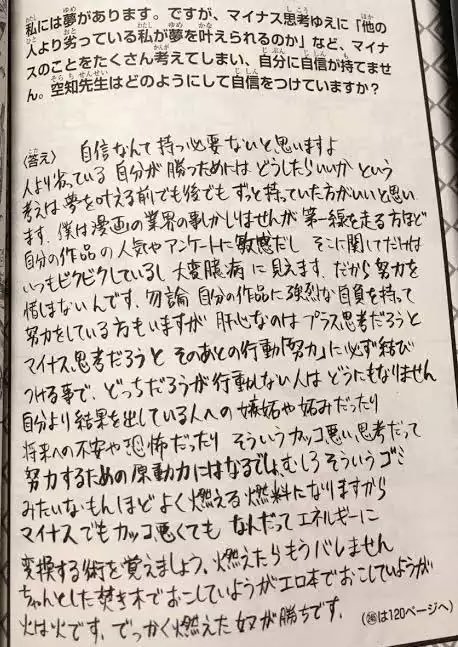 私には夢があります。ですが、マイナス思考ゆえに「他の
人より劣っている私が夢を叶えられるのか」など、マイナ
スのことをたくさん考えてしまい、自分に自信が持てませ
ん。空知先生はどのようにして自信をつけていますか？
〈答え〉 自信なんて持つ必要ないと思いますよ
人より劣っている自分が勝つためにはどうしたらいいか という
考えは夢を叶える前でも後でもずっと持っていた方がいいと思い
ます。僕は漫画の業界の事しかしりませんが第一線を走る方ほど
自分の作品の人気やアンケートに敏感だし そこに関してだけは
いつもビクビクしているし大変臆病に見えます。だから努力を
惜しまないんです。勿論自分の作品に強烈な自負を持って
努力をしている方もいますが 肝心なのはプラス思考だろうと
マイナス思考だろうと そのあとの行動「努力」に必ず結び
つける事で、どっちだろうが行動しない人はどうにもなりません
自分より結果を出している人への嫉妬や妬みだったり
将来への不安や恐怖だったり そういうカッコ悪い思考だって
努力するための原動力にはなるでしょ。むしろそういうゴミ
みたいなもんほどよく燃える燃料になりますから
マイナスでもカッコ悪くても なんだってエネルギーに
変換する術を覚えましょう。燃えたらもうバレません
ちゃんとした焚き木でおこしていようがエロ本でおこしていようが
火は火です。でっかく燃えた奴が勝ちです。
は120ページへ)